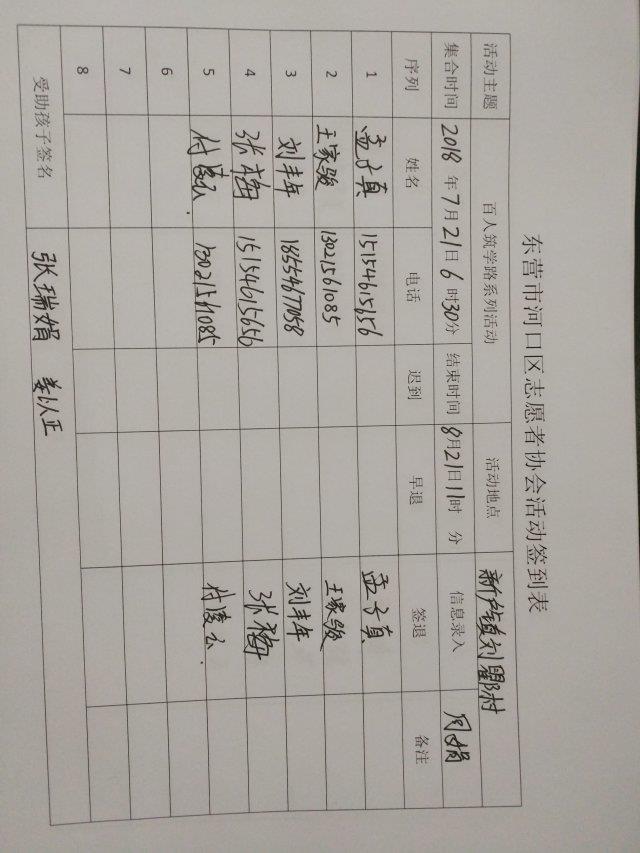 东营市河口区志愿者协会活动签到表
活动主题 百人筑学路系列活动 活动地点 新户镇刘郾村
集合时间 2018年7月21日6时30分 结束时间 8月21日11时 分 信息录入 闫娟
序列 姓名 电话 迟到 早退 签退 备注
1 孟子真 15154615156 孟子真
2 王家骏 13021561085 王家骏
3 刘丰年 18554677058 刘丰年
4 张梅 15154615656 张梅
5 付凌云. 13021561085 付凌云.
6
7
8
受助孩子签名 张瑞娟 姜以正